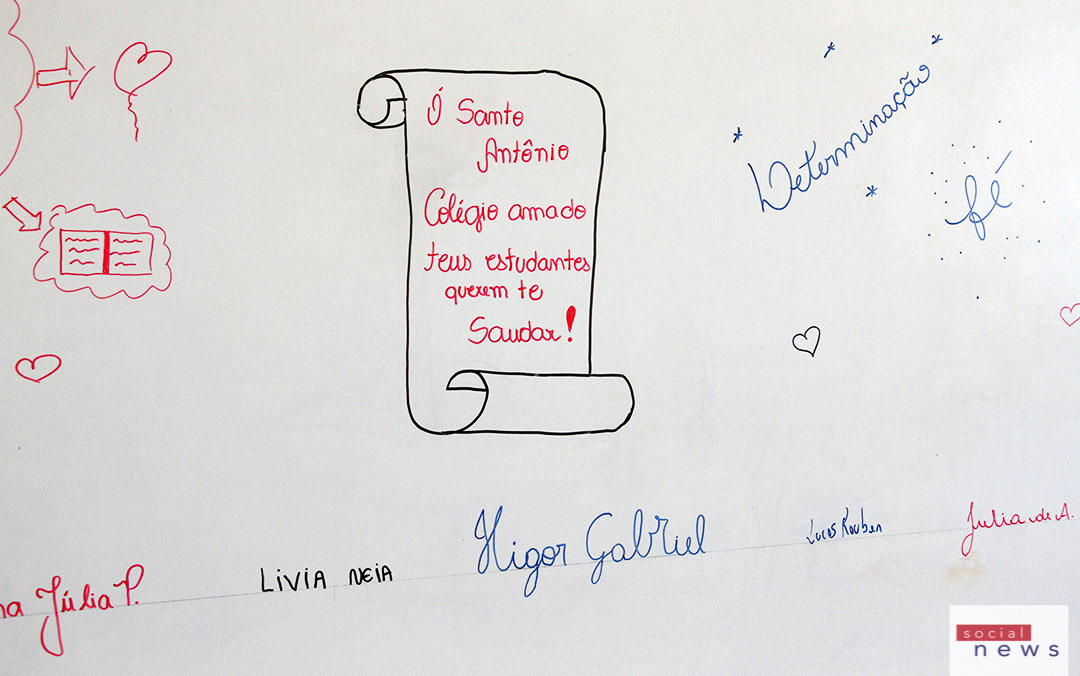 Ó Santo
Antônio
Colégio amado
teus estudantes
querem te
Saudar!
Determinação
fé
na Júlia P.
LIVIA NEIA
Higor Gabriel
Lucas Rouben
Julia de A.
social
news